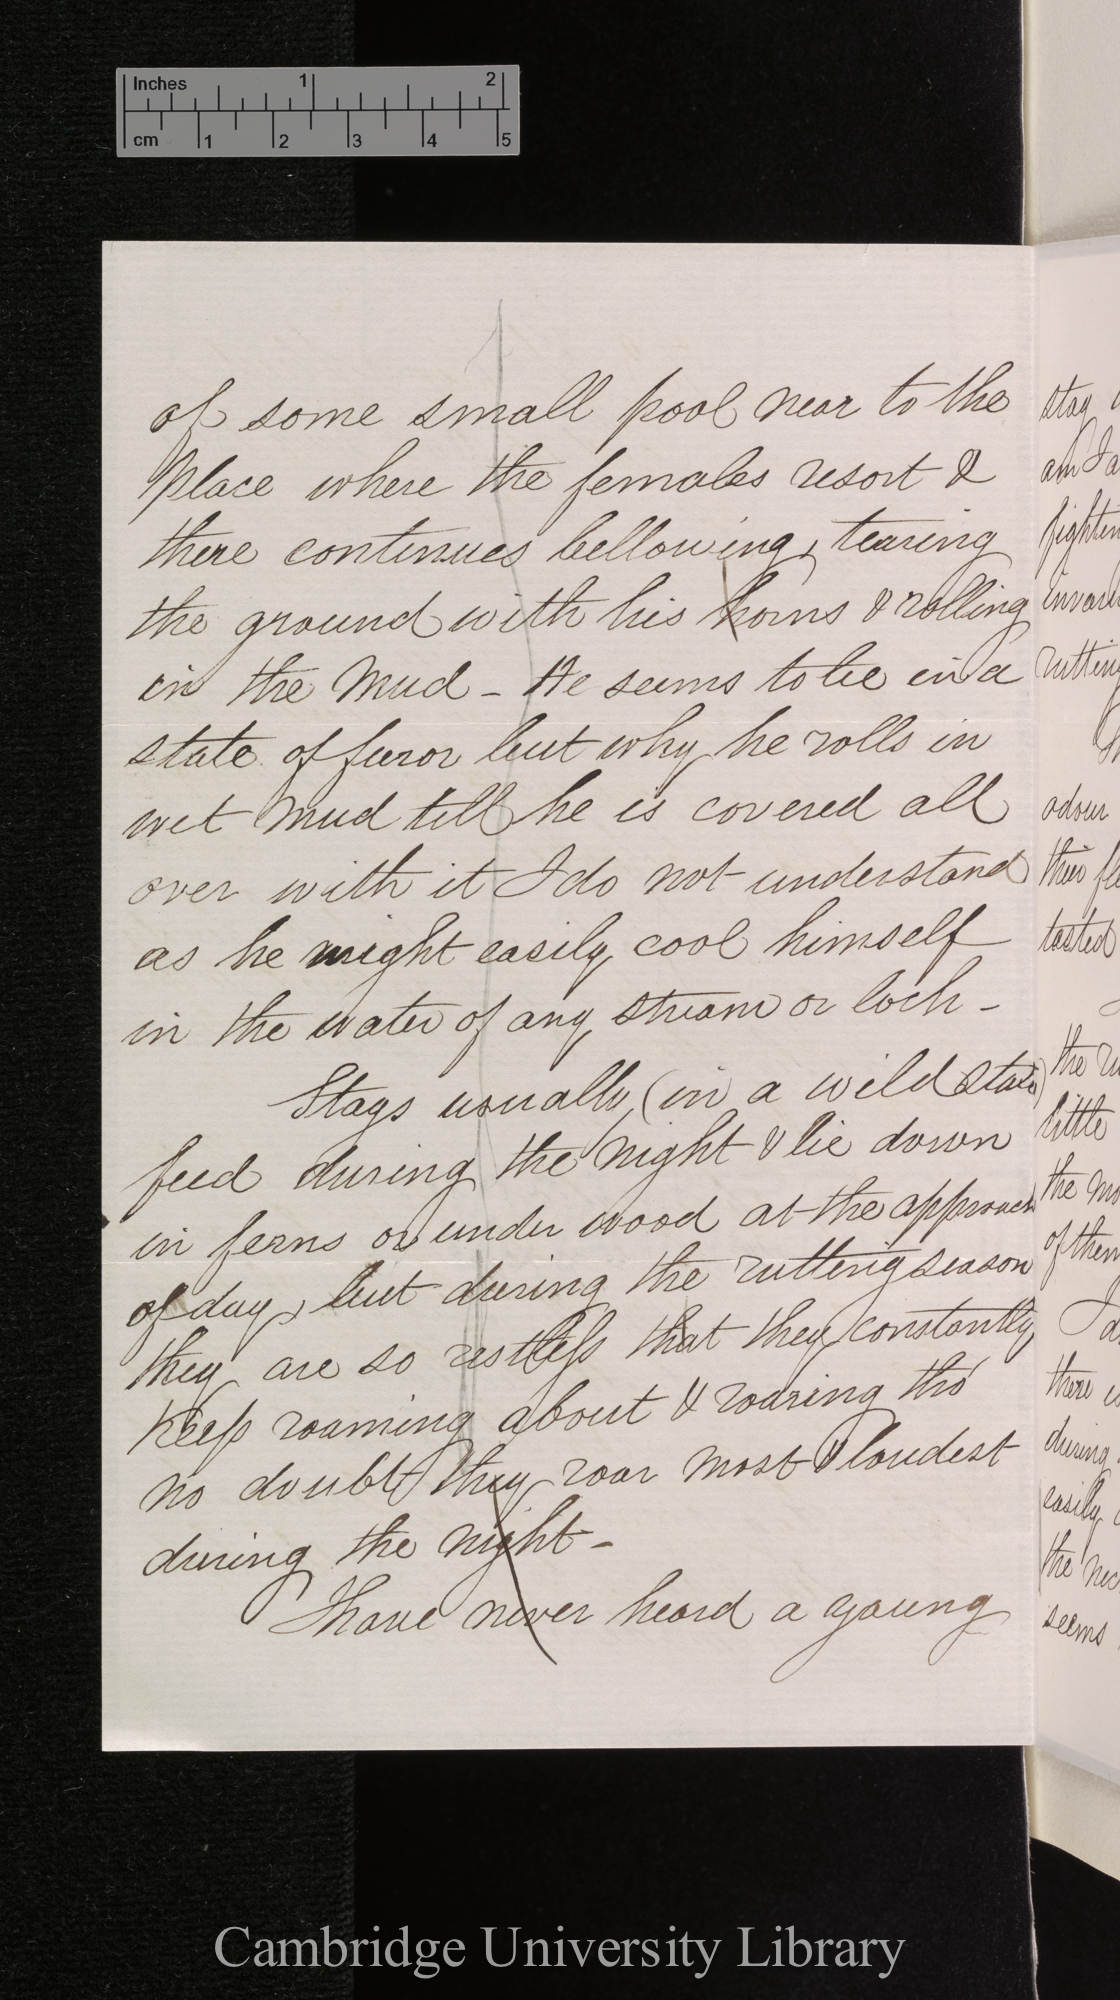 Inches 1 2
cm 1 2 3 4 5
of some small pool near to the
Place where the females resort &
there continues bellowing, tearing
the ground with his horns & rolling
in the Mud – He seems to be in a
state of furor but why he rolls in
wet Mud till he is covered all
over with it I do not understand
as he might easily cool himself
in the water of any stream or loch –
Stags usually (in a wild state)
feed during the Night & lie down
in ferns or under wood at the approach
of day, but during the rutting season
they are so restless that they constantly
Keep roaming about & roaring tho'
no doubt they roar most & loudest
during the night –
I have never heard a young
stag
am I a
rutting
odour
their
tasted
the
little
the
of them
I
there
during
easily
the
seems
Cambridge University Library